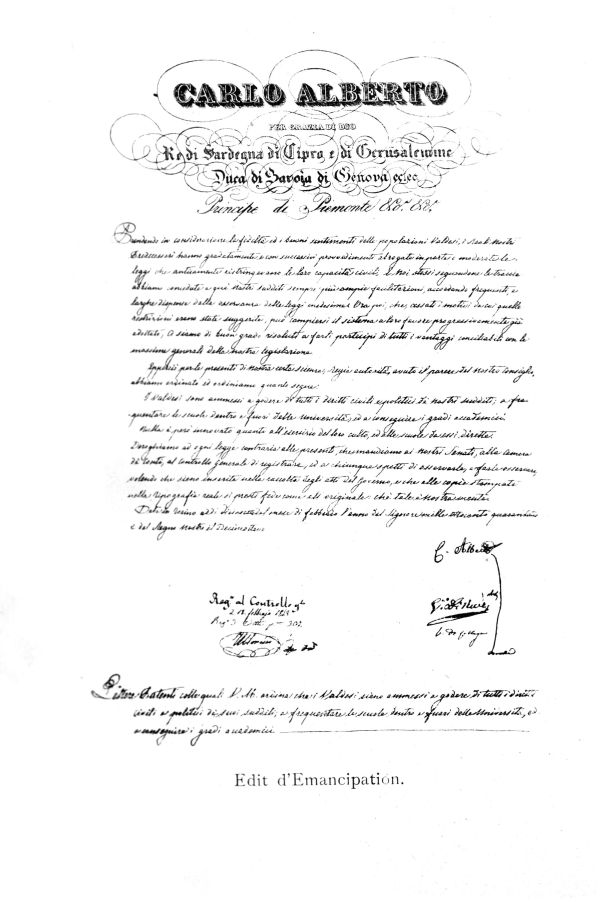 CARLO ALBERTO
PER GRAZIA DI DIO
Re di Sardegna di Cipro e di Gerusalemme
Duca di Savoia di Genova ec. ec.
Principe di Piemonte &c. &c.
Prendendo in considerazione la fedeltà ed i buoni sentimenti delle popolazioni Valdesi, i Reali Nostri
Predecessori hanno gradatamente e con successivi provvedimenti abrogate in parte o moderate le
leggi che anticamente ristringevano le loro capacità civili. E Noi stessi seguendone le traccie
abbiamo conceduto a que' nostri sudditi sempre più ampie facilitazioni, accordando frequenti e
larghe dispense dalla osservanza delle leggi medesime. Ora poi, che, cessati i motivi da cui quelle
restrizioni erano state suggerite, può compiersi il sistema a loro favore progressivamente già
adottato, Ci siamo di buon grado risoluti a farli partecipi di tutti i vantaggi conciliabili con le
massime generali della nostra legislazione.
Epperciò per le presenti di Nostra certa scienza, Regia autorità, avuto il parere del Nostro Consiglio,
abbiamo ordinato ed ordiniamo quanto segue:
I Valdesi sono ammessi a godere di tutti i diritti civili e politici de' nostri sudditi; a fre
quentare le scuole dentro e fuori delle università, ed a conseguire i gradi accademici.
Nulla è però innovato quanto all'esercizio del loro culto, ed alle scuole da essi dirette.
Deroghiamo ad ogni legge contraria alle presenti, che mandiamo ai Nostri Senati, alla Camera
de' Conti, al Controllo Generale di registrare, ed a chiunque spetti di osservarle, e farle osservare,
volendo che siano inserite nella raccolta degli atti del Governo, e che alle copie stampate
nella tipografia reale si presti fede come all'originale: chè tale è Nostra mente.
Dat. in Torino addì diciassette del mese di febbraio l'anno del Signore mille ottocento quarantotto
e del Regno Nostro il Decimottavo.
C. Alberto
Reg.º al Controllo g.le
Lettere Patenti colle quali V. M. ordina che i Valdesi siano ammessi a godere di tutti i diritti
civili e politici de' suoi sudditi, a frequentare le scuole dentro e fuori delle Università, ed
a conseguire i gradi accademici
Edit d'Emancipation.